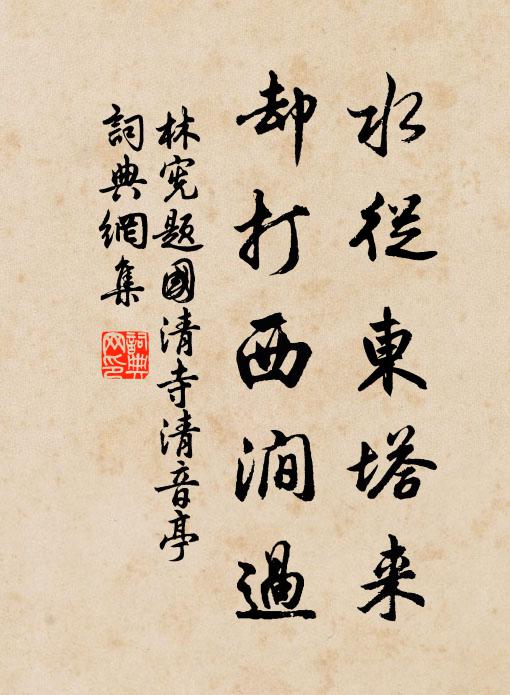 水從東塔来
却打西澗過
林宪題國清寺清音亭
詞典網集
詞典网印